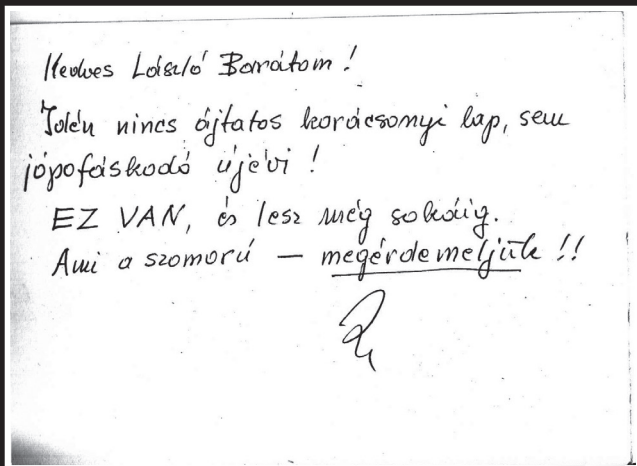 Kedves László Barátom!
Idén nincs ájtatos karácsonyi lap, sem
jópofáskodó újévi!
EZ VAN, és lesz még sokáig.
Ami a szomorú — megérdemeljük!!